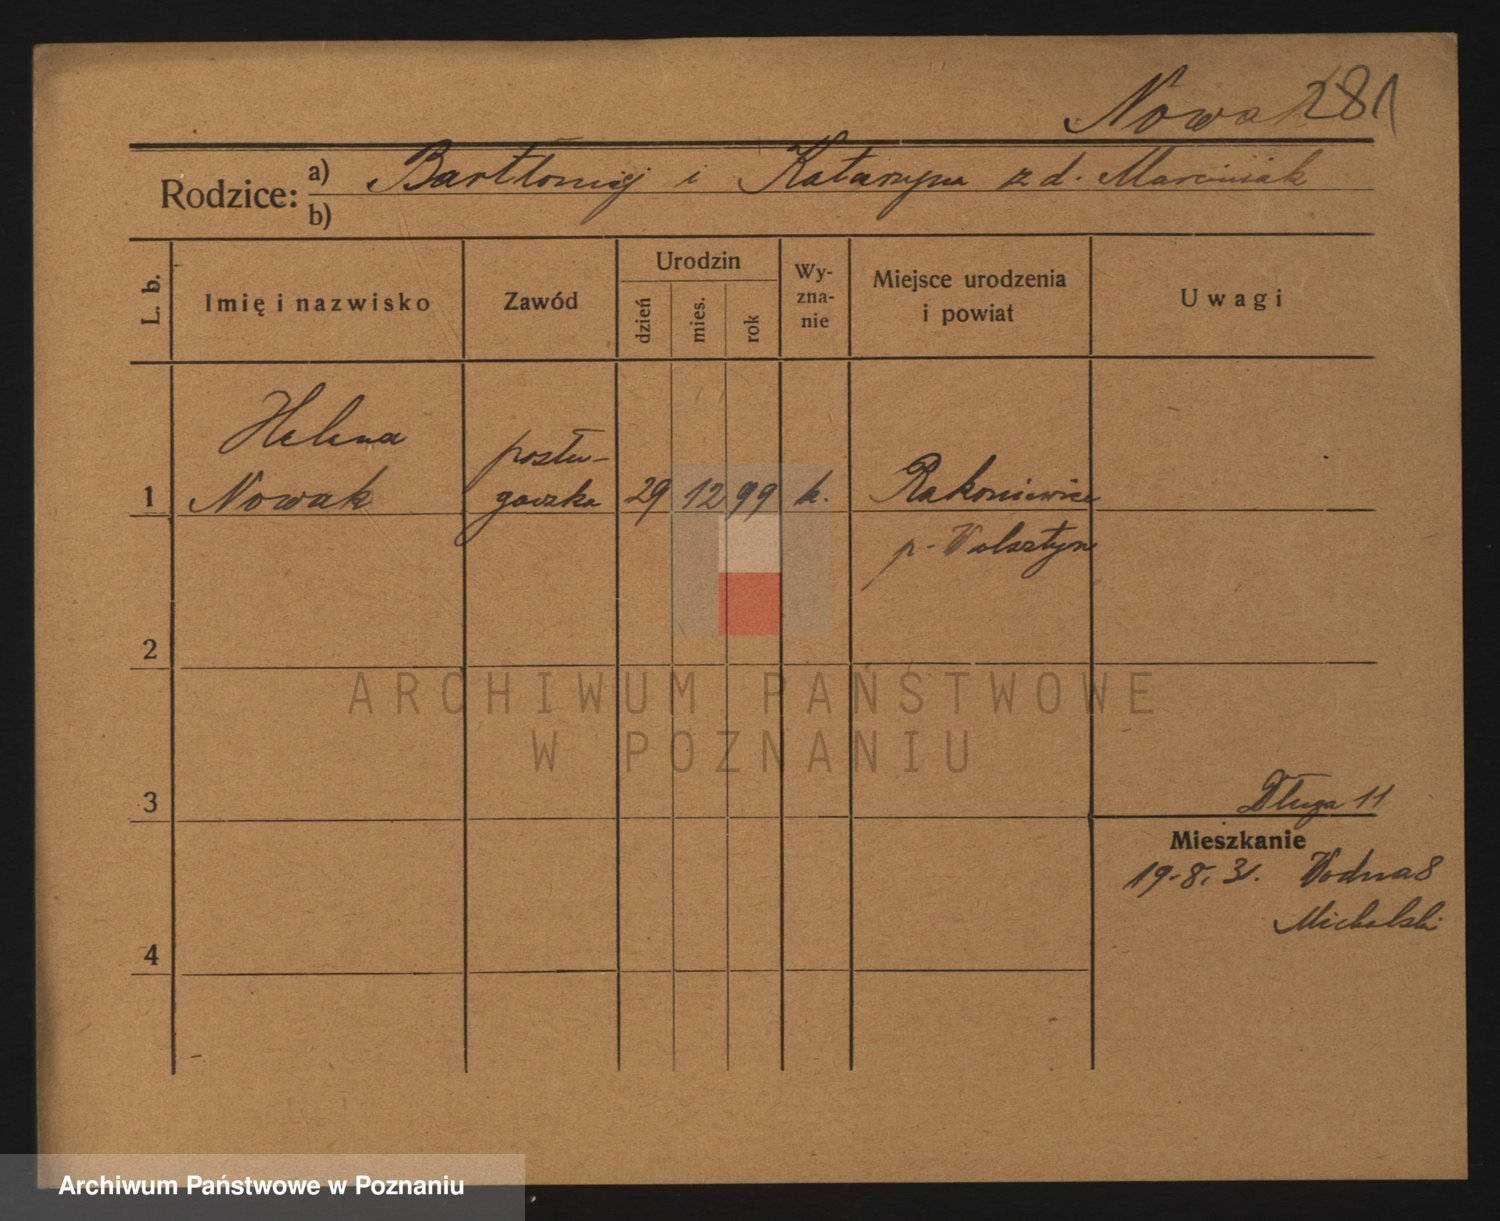 Nowak 281
Rodzice: a) Bartłomiej i Katarzyna z d. Marciniak
b)
L. b.
Imię i nazwisko
Zawód
Urodzin
dzień
mies.
rok
Wy-
zna-
nie
Miejsce urodzenia
i powiat
Uwagi
Helena
posłu-
1 Nowak gaczka 29 12 99 k. Rakoniewice
p. Wolsztyn
2
ARCHIWUM PAŃSTWOWE
W POZNANIU
3
Długa 11
Mieszkanie
19.8.31. Wodna 8
Michalski
4
Archiwum Państwowe w Poznaniu